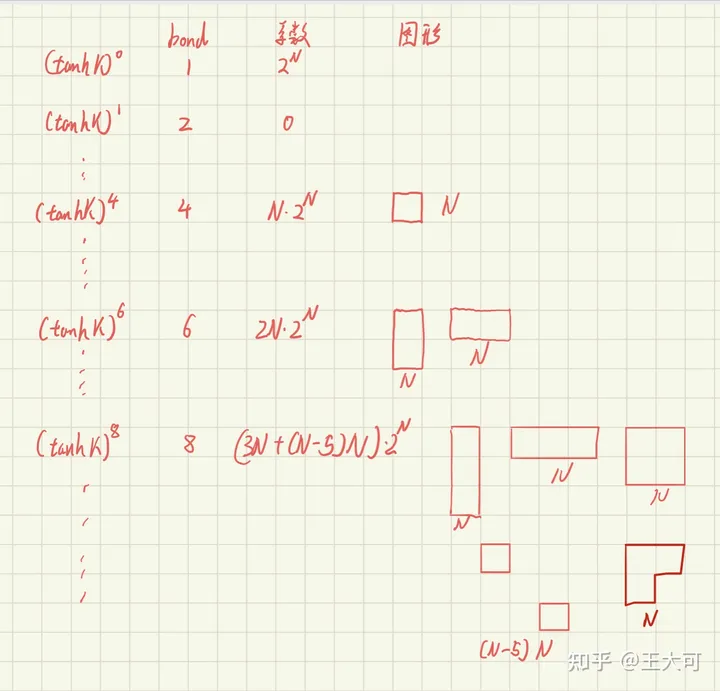 bond 系数 图形
(tanhK)^0 1 2^N
(tanhK)^1 2 0
(tanhK)^4 4 N·2^N N
(tanhK)^6 6 2N·2^N
N N
(tanhK)^8 8 (3N+(N-5)N)·2^N
N N N
N
(N-5) N
知乎 @王大可